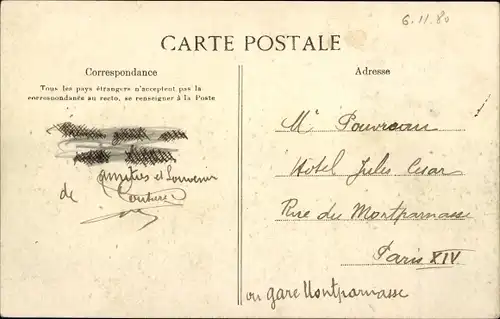 6.11.80
CARTE POSTALE
Correspondance
Tous les pays étrangers n'acceptent pas la
correspondance au recto, se renseigner à la Poste
amitiés et Souvenir
de
Adresse
Mr Pouvreau
Hotel Jules Cesar
Rue du Montparnasse
Paris XIV
ou gare Montparnasse